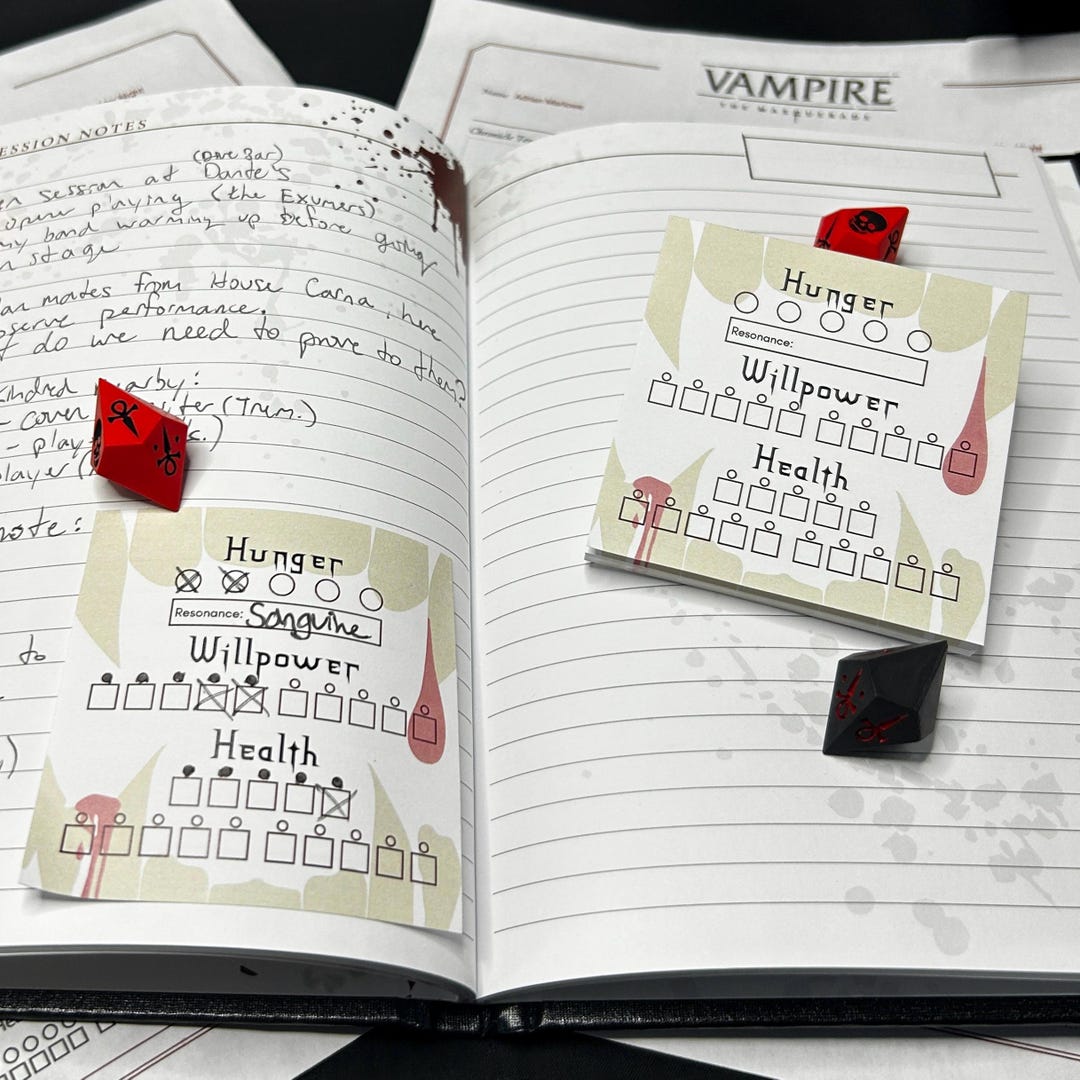 VAMPIRE
THE MASQUERADE
ESSION NOTES
(Dive Bar)
en session at Dante's
opener playing (the Exumers)
my band warming up before going
n stage
lan mates from House Carna, here
bserve performance.
t do we need to prove to them?
kindred arby:
- cover iter (Trem.)
- play s.)
player (
note:
to
Hunger
Resonance: Sanguine
Willpower
Health
Hunger
Resonance:
Willpower
Health